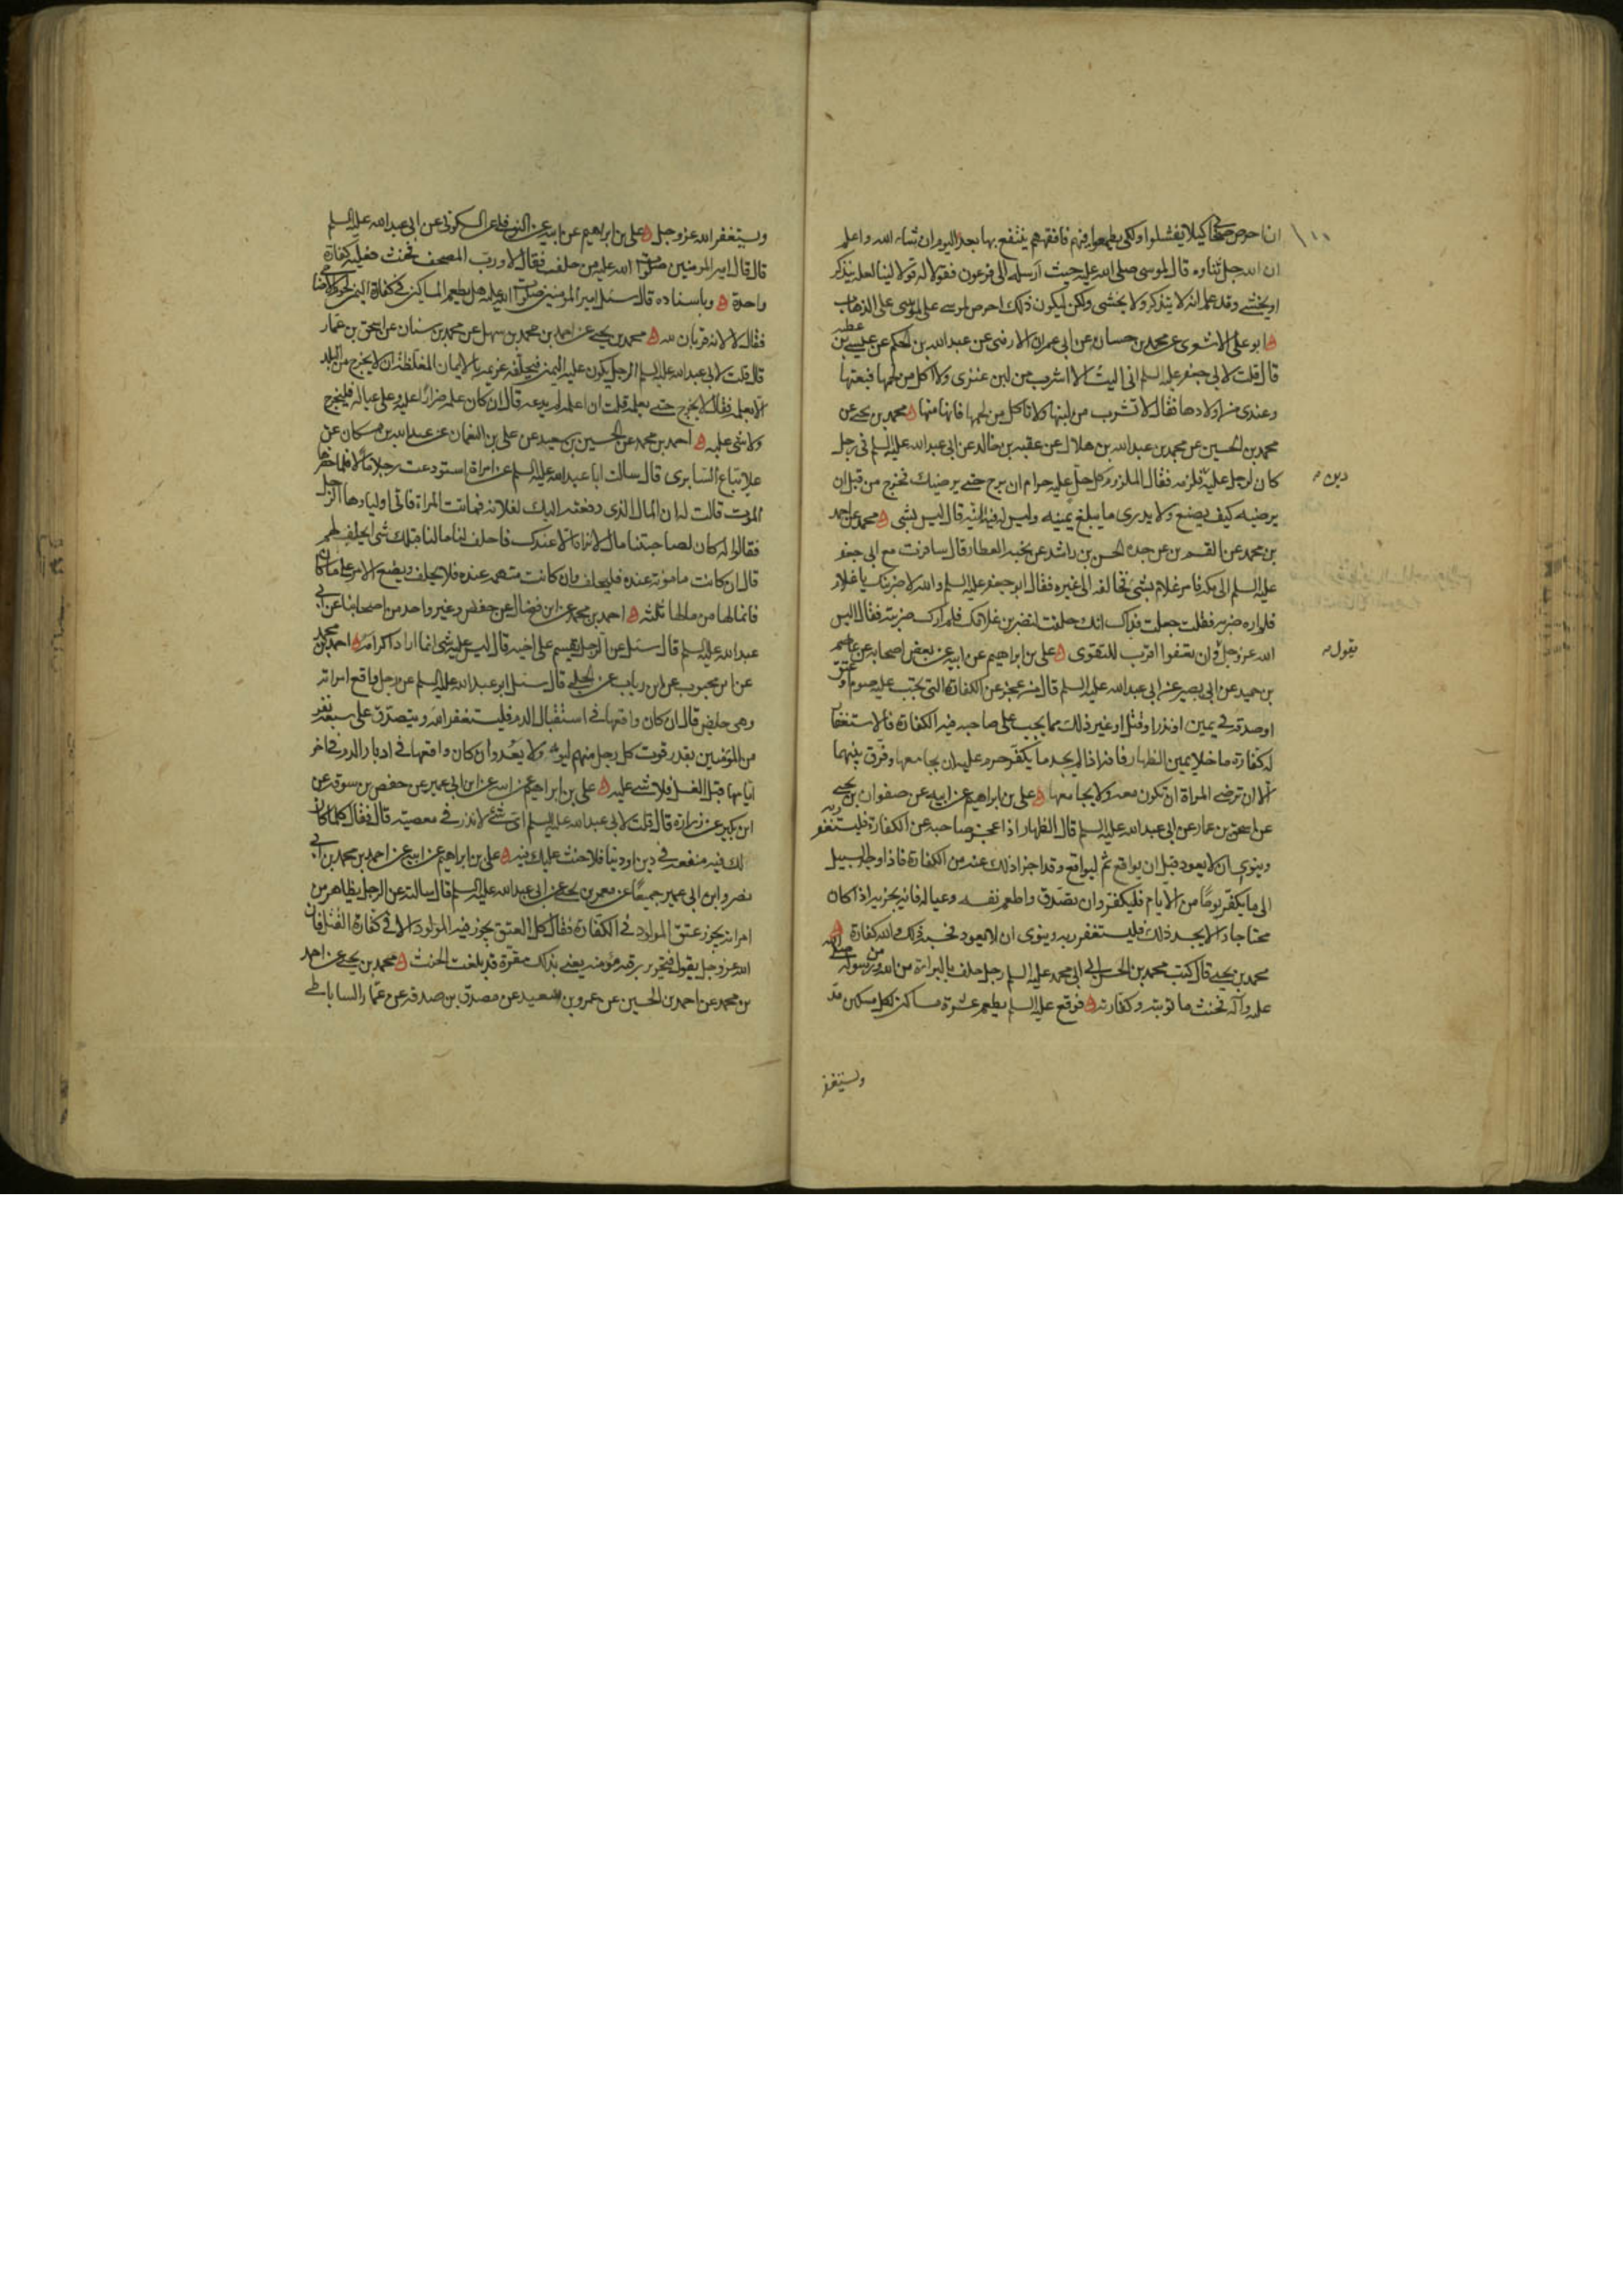 ان احرض اصحابي كيلا يفشلوا ولكي يطمعوا فيهم فافقههم ينتفع بها بعد اليوم ان شاء الله واعلم
ان الله جل ثناوه قال لموسى صلى الله عليه حيث ارسله الى فرعون فقولا له قولا لينا لعله يتذكر
او يخشى وقد علم انه لا يتذكر ولا يخشى ولكن ليكون ذلك احرص لموسى على الذهاب
ابو علي الاشعري عن محمد بن حسان عن ابي عمران الارمني عن عبد الله بن الحكم عن عيسى بن عطيه
قال قلت لابي جعفر عليه السلم اني اليت الا اشرب من لبن عنزي ولا اكل من لحمها فبعتها
وعندي من اولادها فقال لا تشرب من لبنها ولا تاكل من لحمها فانها منها محمد بن يحيى عن
محمد بن الحسين عن محمد بن عبد الله بن هلال عن عقبه بن خالد عن ابي عبد الله عليه السلم في رجل
كان لرجل عليه فلزمه فقال الملزوم كل حل عليه حرام ان برح حتى يرضيك فخرج من قبل ان
دين
يرضيه كيف يصنع ولا يدري ما يبلغ يمينه وليس له فيها نية قال ليس بشي محمد عن احمد
بن محمد عن القسم بن عن جده الحسن بن راشد عن نجيه العطار قال سافرت مع ابي جعفر
عليه السلم الى مكه فامر غلامه بشي فخالفه الى غيره فقال ابو جعفر عليه السلم والله لاضربنك يا غلام
فلم اره ضربه فقلت جعلت فداك انك حلفت لتضربن غلامك فلم ارك ضربته فقال اليس
الله عز وجل وان تعفوا اقرب للتقوى علي بن ابراهيم عن ابيه عن بعض اصحابه عن عاصم
يقول
بن حميد عن ابي بصير عن ابي عبد الله عليه السلم قال من عجز عن الكفارة التي تجب عليه صوم او عتق
او صدقة في يمين او نذر او قتل او غير ذلك مما يجب على صاحبه فيه الكفارة فالاستغفار
له كفارة ما خلا يمين الظهار فانه اذا لم يجد ما يكفر حرم عليه ان يجامعها وفرق بينهما
الا ان ترضى المراة ان تكون معه ولا يجامعها علي بن ابراهيم عن ابيه عن صفوان بن يحيى
عن اسحق بن عمار عن ابي عبد الله عليه السلم قال الظهار اذا عجز صاحبه عن الكفارة فليستغفر ربه
وينوي ان لا يعود قبل ان يواقع ثم ليواقع وقد اجزا ذلك عنه من الكفارة فاذا وجد السبيل
الى ما يكفر يوما من الايام فليكفر وان تصدق واطعم نفسه وعياله فانه يجزيه اذا كان
محتاجا والا يجد ذلك فليستغفر ربه وينوي ان لا يعود فحسبه ذلك والله كفارة
محمد بن يحيى قال كتب محمد بن الحسن الى ابي محمد عليه السلم رجل حلف بالبراءة من الله ومن رسوله صلى الله
عليه وآله فحنث ما توبته وكفارته فوقع عليه السلم يطعم عشرة مساكين لكل مسكين مد
ويستغفر
ويستغفر الله عز وجل علي بن ابراهيم عن ابيه عن النوفلي عن السكوني عن ابي عبد الله عليه السلم
قال قال امير المومنين صلوات الله عليه من حلف فقال لا ورب المصحف فحنث فعليه كفارة
واحدة وباسناده قال سئل امير المومنين صلوات الله عليه هل يطعم المساكين في كفارة اليمين لحوم الاضاحي
فقال لا لانه قربان لله محمد بن يحيى عن احمد بن محمد بن سهل عن محمد بن سنان عن اسحق بن عمار
قال قلت لابي عبد الله عليه السلم الرجل يكون عليه اليمين فيحلفه غريمه بالايمان المغلظة ان لا يخرج من البلد
الا بعلمه فقال لا يخرج حتى يعلمه قلت ان اعلمه لم يدعه قال ان كان علمه ضررا عليه وعلى عياله فليخرج
ولا شي عليه احمد بن محمد عن الحسين بن سعيد عن علي بن النعمان عن عبد الله بن مسكان عن
علا بياع السابري قال سالت ابا عبد الله عليه السلم عن امراة استودعت رجلا مالا فلما حضرها
الموت قالت له ان المال الذي دفعته اليك لفلانه فماتت المراة فاتى اولياوها الرجل
فقالوا له كان لصاحبتنا مال لا نراه الا عندك فاحلف لنا ما لنا قبلك شي ايحلف لهم
قال ان كانت مامونة عنده فليحلف وان كانت متهمه عنده فلا يحلف ويضع الامر على ما كان
فانما لها من مالها ثلثه احمد بن محمد عن ابن فضال عن حفص وغير واحد من اصحابنا عن ابي
عبد الله عليه السلم قال سئل عن الرجل يقسم على اخيه قال ليس عليه شي انما اراد اكرامه احمد بن محمد
عن ابن محبوب عن ابن رياب عن الحلبي قال سئل ابو عبد الله عليه السلم عن رجل واقع امراته
وهي حايض قال ان كان واقعها في استقبال الدم فليستغفر الله وليتصدق على سبعة نفر
من المومنين بقدر قوت كل رجل منهم ليومه ولا يعد وان كان واقعها في ادبار الدم في اخر
ايامها قبل الغسل فلا شي عليه علي بن ابراهيم عن ابيه عن ابن ابي عمير عن حفص بن سوقه عن
ابن بكير عن زرارة قال قلت لابي عبد الله عليه السلم اي شي لا نذر في معصيته قال فقال كلما كان
لك فيه منفعه في دين او دنيا فلا حنث عليك فيه علي بن ابراهيم عن ابيه عن احمد بن محمد بن ابي
نصر وابن ابي عمير جميعا عن معمر بن يحيى عن ابي عبد الله عليه السلم قال سالته عن الرجل يظاهر من
امراته يجوز عتق المولود في الكفارة فقال كل العتق يجوز فيه المولود الا في كفارة القتل فان
الله عز وجل يقول فتحرير رقبه مومنه يعني بذلك مقرة قد بلغت الحنث محمد بن يحيى عن احمد
بن محمد عن احمد بن الحسين عن عمرو بن سعيد عن مصدق بن صدقه عن عمار الساباطي